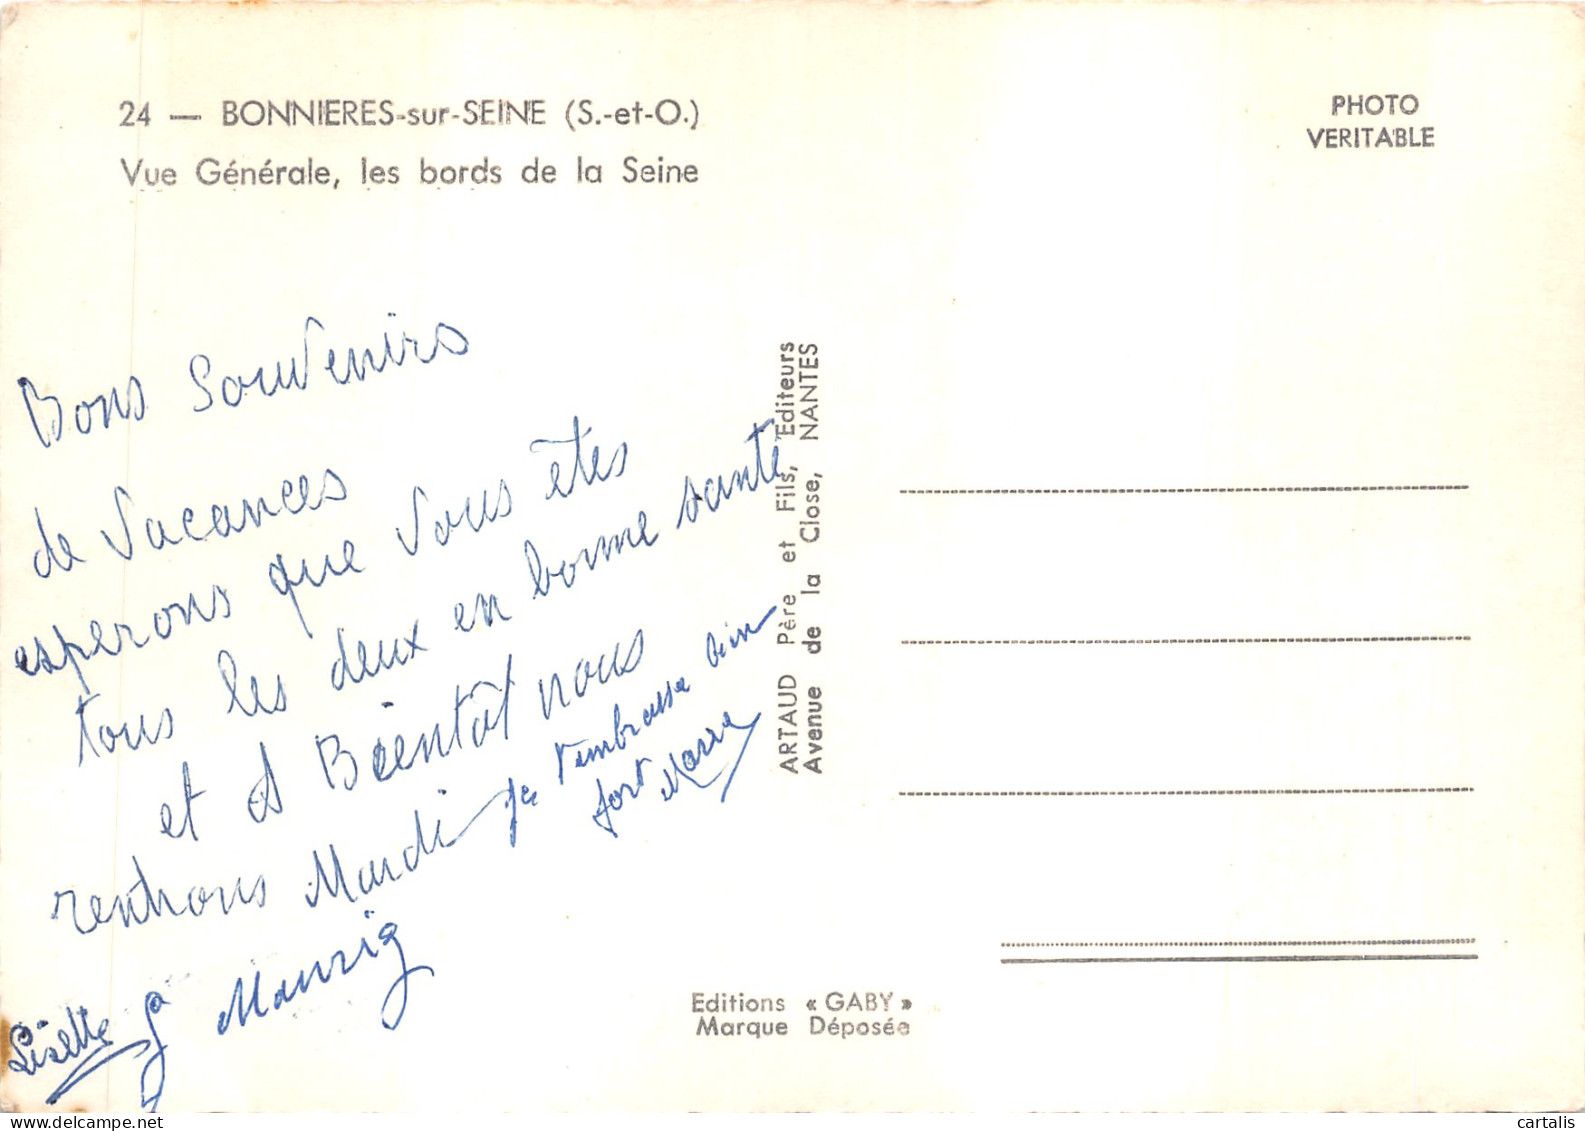 24 — BONNIERES-sur-SEINE (S.-et-O.)
Vue Générale, les bords de la Seine
PHOTO
VERITABLE
Bons Souvenirs
de Vacances
esperons que vous êtes
tous les deux en bonne santé
et A Bientôt nous
rentrons Mardi
Je t'embrasse bien
fort
Lisette
ARTAUD Père et Fils, Editeurs
Avenue de la Close, NANTES
Editions « GABY »
Marque Déposée
cartalis